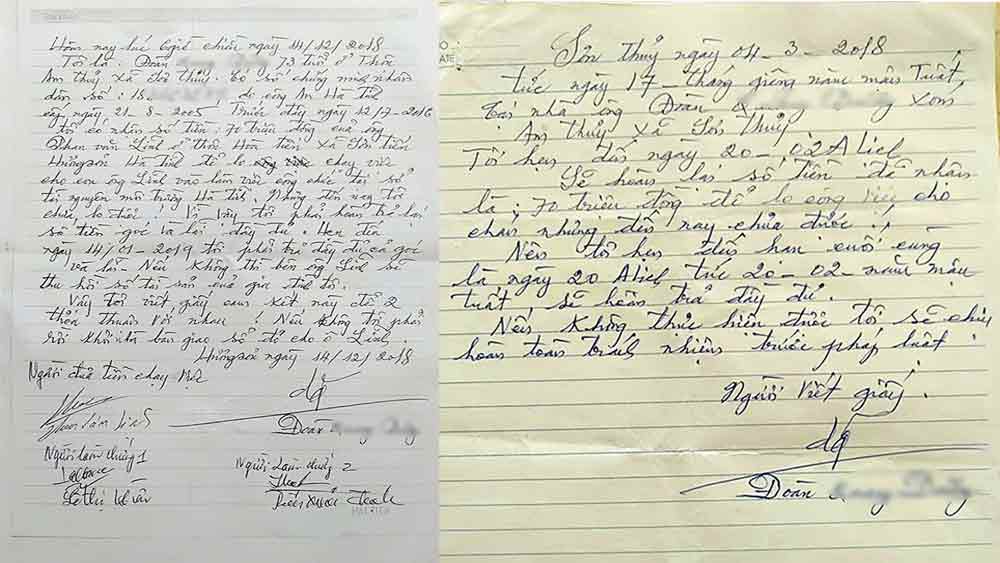 Hôm nay lúc 6 giờ chiều ngày 14/12/2018
Tôi là: Đoàn 73 tuổi ở Thôn
Am thuỷ xã Sơn thuỷ. Có số chứng minh nhân
dân số: 18 do công An Hà Tĩnh
cấp ngày 21-8-2005 Trước đây ngày 12/7-2016
tôi có nhận số tiền: 70 triệu đồng của ông
Phan văn Lĩnh ở thôn Hòa tiến, Xã Sơn tiến
Hương sơn Hà Tĩnh để lo chạy việc
cho con ông Lĩnh vào làm việc công chức tại sở
tài nguyên môi trường Hà tĩnh. Nhưng đến nay tôi
chưa lo được! Vì vậy tôi phải hoàn trả lại
số tiền gốc và lãi đầy đủ. Hẹn đến
ngày 14/01-2019 tôi phải trả đầy đủ cả gốc
và lãi - Nếu không thì bên ông Lĩnh sẽ
thu hồi số tài sản của gia đình tôi.
Vậy tôi viết giấy cam kết này để 2
thỏa thuận với nhau! Nếu không tôi phải
rời khỏi nhà bàn giao sổ đỏ cho ô Lĩnh.
Hương sơn ngày 14/12/2018
Người đưa tiền chạy việc
Đoàn
Người làm chứng 1
Người làm chứng 2
Lê thị
Sơn thuỷ ngày 04-3-2018
tức ngày 17-tháng giêng năm mậu Tuất,
Tại nhà ông Đoàn xóm
Am thuỷ Xã Sơn Thuỷ
Tôi hẹn đến ngày 20-02 Alich
Sẽ hoàn lại số tiền đã nhận
là: 70 triệu đồng để lo công việc cho
cháu nhưng đến nay chưa được.
Nên tôi hẹn đến hạn cuối cùng
là ngày 20 Alich tức 20-02-năm mậu
tuất sẽ hoàn trả đầy đủ.
Nếu không thực hiện được tôi sẽ chịu
hoàn toàn trách nhiệm trước pháp luật
Người viết giấy.
Đoàn